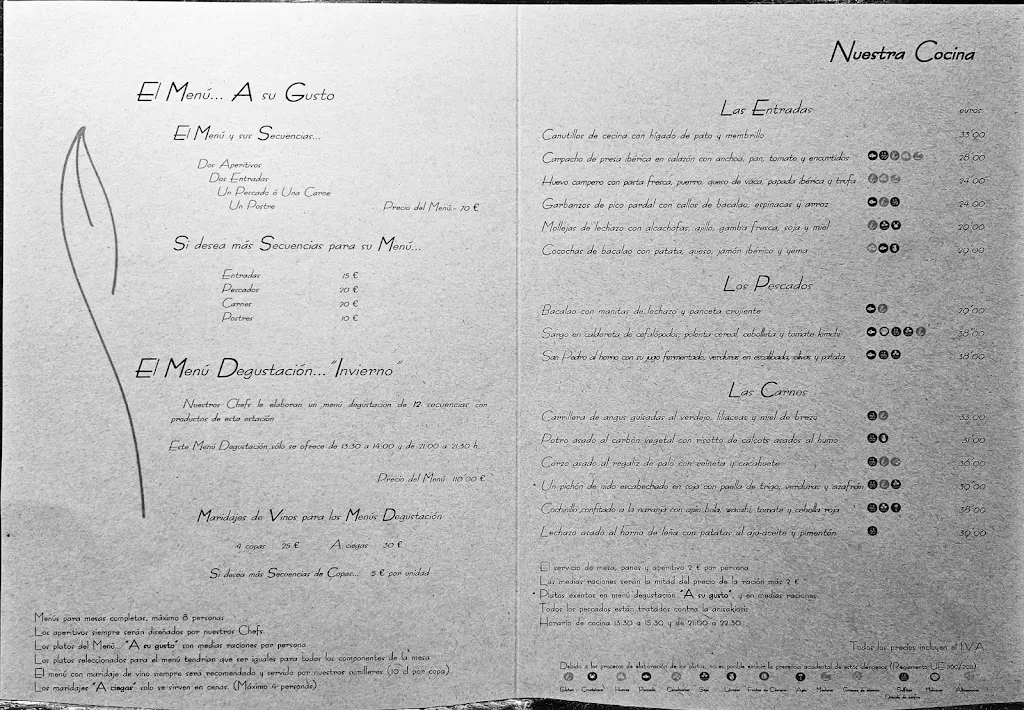 El Menú... A su Gusto
El Menú y sus Secuencias...
Dos Aperitivos
Dos Entradas
Un Pescado ó Una Carne
Un Postre
Precio del Menú.- 70 €
Si desea más Secuencias para su Menú...
Entradas 15 €
Pescados 20 €
Carnes 20 €
Postres 10 €
El Menú Degustación... "Invierno"
Nuestros Chefs le elaboran un menú degustación de 12 secuencias con
productos de esta estación
Este Menú Degustación, sólo se ofrece de 13:30 a 14:00 y de 21:00 a 21:30 h.
Precio del Menú 110'00 €
Maridajes de Vinos para los Menús Degustación
4 copas 25 € A ciegas 30 €
Si desea más Secuencias de Copas... 5 € por unidad
Menús para mesas completas, máximo 8 personas
Los aperitivos siempre serán diseñados por nuestros Chefs.
Los platos del Menú... "A su gusto" son medias raciones por persona
Los platos seleccionados para el menú tendrían que ser iguales para todos los componentes de la mesa
El menú con maridaje de vino siempre será recomendado y servido por nuestros sumilleres. (10 cl por copa)
Los maridajes "A ciegas" solo se sirven en cenas. (Máximo 4 personas)
Nuestra Cocina
Las Entradas euros
Canutillos de cecina con hígado de pato y membrillo 33'00
Carpacho de presa ibérica en salazón con anchoa, pan, tomate y encurtidos 28'00
Huevo campero con pasta fresca, puerro, queso de vaca, papada ibérica y trufa 24'00
Garbanzos de pico pardal con callos de bacalao, espinacas y arroz 24'00
Mollejas de lechazo con alcachofas, ajillo, gamba fresca, soja y miel 29'00
Cocochas de bacalao con patata, queso, jamón ibérico y yema 29'00
Los Pescados
Bacalao con manitas de lechazo y panceta crujiente 29'00
Sargo en caldereta de cefalópodos, polenta cereal, cebolleta y tomate kimchi 38'00
San Pedro al horno con su jugo fermentado, verduras en escalibada, olivas y patata 38'00
Las Carnes
Carrillera de angus guisadas al verdejo, filiáceas y miel de brezo 33'00
Potro asado al carbón vegetal con risotto de calçots asados al humo 31'00
Corzo asado al regaliz de palo con reineta y cacahuete 36'00
* Un pichón de nido escabechado en soja con paella de trigo, verduras y azafrán 39'00
Cochinillo confitado a la naranja con apio bola, wasabi, tomate y cebolla roja 38'00
Lechazo asado al horno de leña con patatas al ajo-aceite y pimentón 39'00
El servicio de mesa, panes y aperitivo 2 € por persona
Las medias raciones serán la mitad del precio de la ración más 2 €
* Platos exentos en menú degustación "A su gusto", y en medias raciones
Todos los pescados están tratados contra la anisakiosis
Horario de cocina 13:30 a 15:30 y de 21:00 a 22:30
Todos los precios incluyen el I.V.A.
Debido a los procesos de elaboración de los platos, no es posible excluir la presencia accidental de otros alérgenos (Reglamento UE 1169/2011)
Gluten Crustáceos Huevos Pescado Cacahuetes Soja Lácteos Frutos de Cáscara Apio Mostaza Granos de sésamo Sulfitos Moluscos Altramuces
Dióxido de azufre